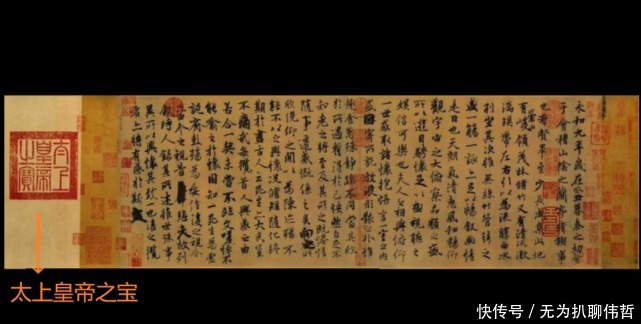 永和九年歲在癸丑暮春之初會
于會稽山陰之蘭亭脩稧事
也羣賢畢至少長咸集此地
有峻領茂林脩竹又有清流激
湍暎帶左右引以為流觴曲水
列坐其次雖無絲竹管弦之
盛一觴一詠亦足以暢叙幽情
是日也天朗氣清惠風和暢仰
觀宇宙之大俯察品類之盛
所以遊目騁懷足以極視聽之
娛信可樂也夫人之相與俯仰
一世或取諸懷抱悟言一室之內
或因寄所託放浪形骸之外雖
趣舍萬殊靜躁不同當其欣
於所遇蹔得於己怏然自足不
知老之將至及其所之既惓情
隨事遷感慨係之矣向之所
欣俛仰之閒以為陳迹猶不
能不以之興懷況脩短隨化終
期於盡古人云死生亦大矣豈
不痛哉每攬昔人興感之由
若合一契未嘗不臨文嗟悼不
能喻之於懷固知一死生為虛
誕齊彭殤為妄作後之視今
亦由今之視昔悲夫故列
敘時人錄其所述雖世殊事
異所以興懷其致一也後之攬
者亦將有感於斯文
太上皇帝之寶
太上皇帝之宝
快传号/无为扒聊伟哲